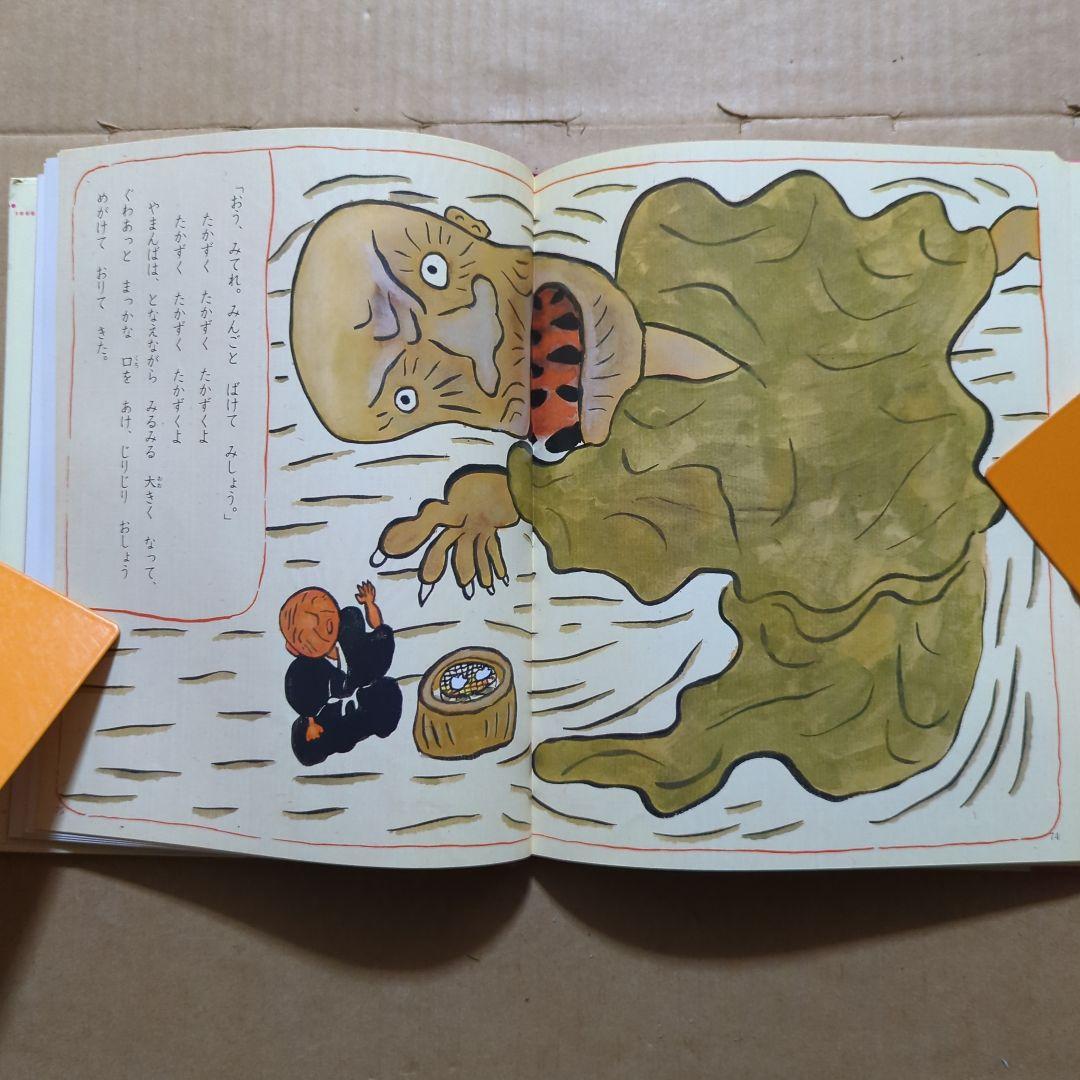 「おう、みてれ。みんごと ばけて みしょう。」
たかずく たかずく たかずくよ
たかずく たかずく たかずくよ
やまんばは、となえながら みるみる 大きく なって、
ぐわあっと まっかな 口を あけ、じりじり おしょう
めがけて おりて きた。
74